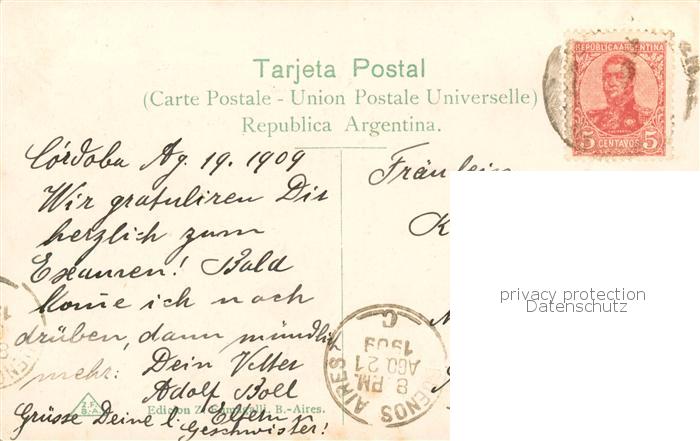 REPUBLICA ARGENTINA
5 CENTAVOS 5
Tarjeta Postal
(Carte Postale - Union Postale Universelle)
Republica Argentina.
Córdoba Ag. 19. 1909
Wir gratuliren Dir
herzlich zum
Examen! Bald
kome ich nach
drüben, dann mündlich
mehr. Dein Vetter
Adolf Boll
Grüsse Deine l. Eltern u
Geschwister!
Fräulein
K
privacy protection
Datenschutz
BUENOS AIRES
C
1909
AGO. 21
8 PM.
Z.F.
B.A.
Edicion Z. Fumagalli, B.-Aires.